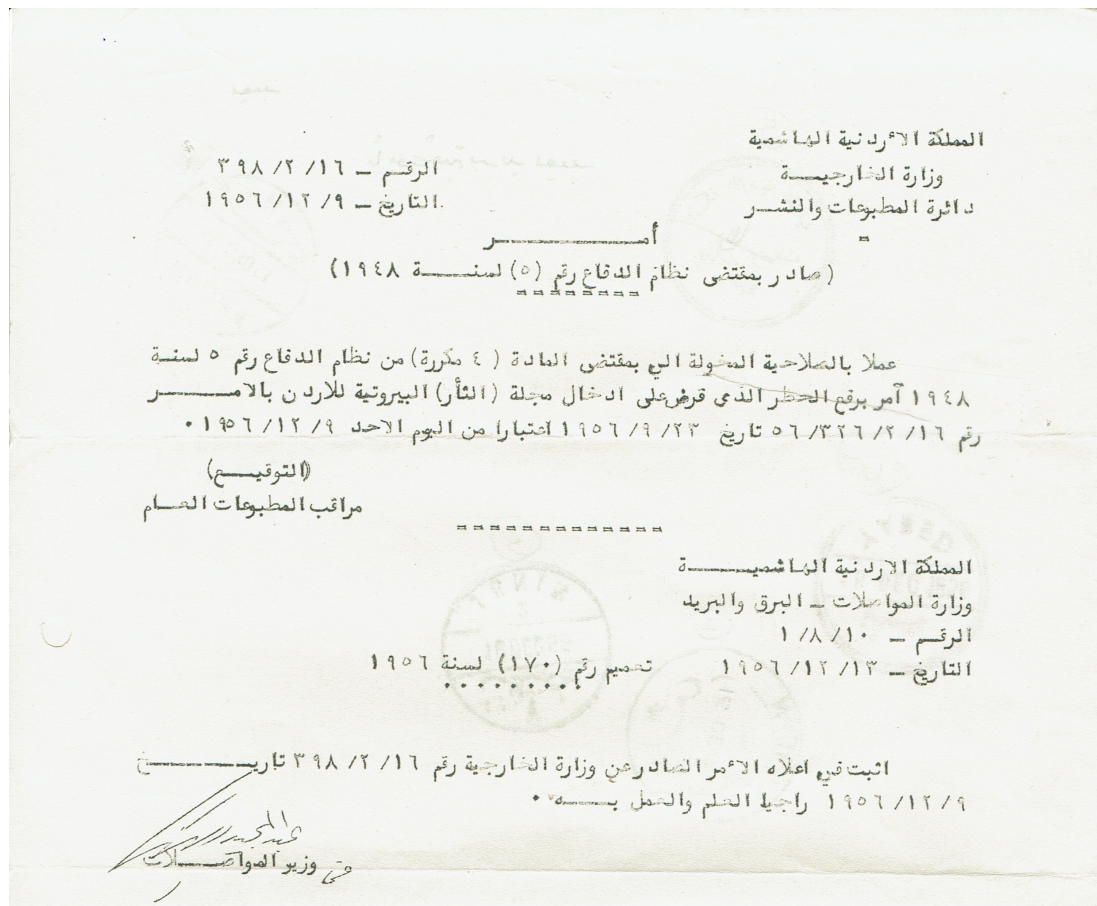 المملكة الأردنية الهاشمية
وزارة الخارجيــة
دائرة المطبوعات والنشر
الرقم ــ ١٦ /٢ /٣٩٨
التاريخ ــ ٩ /١٢ /١٩٥٦
أمــــــــر
(صادر بمقتضى نظام الدفاع رقم (٥) لسنــــة ١٩٤٨)
عملا بالصلاحية المخولة الي بمقتضى المادة (٤ مكررة) من نظام الدفاع رقم ٥ لسنة
١٩٤٨ آمر برفع الحظر الذي فرض على ادخال مجلة (الثأر) البيروتية للاردن بالامـــــر
رقم ١٦ /٢ /٣٢٦ /٥٦ تاريخ ٢٣ /٩ /١٩٥٦ اعتبارا من اليوم الاحد ٩ /١٢ /١٩٥٦ ٠
(التوقيــع)
مراقب المطبوعات العــام
المملكة الاردنية الهاشميــــــة
وزارة المواصلات ــ البرق والبريد
الرقــم ــ ١٠ /٨ /١
التاريخ ــ ١٣ /١٢ /١٩٥٦
تعميم رقم (١٧٠) لسنة ١٩٥٦
اثبت في اعلاه الأمر الصادر عن وزارة الخارجية رقم ١٦ /٢ /٣٩٨ تاريــــــــخ
٩ /١٢ /١٩٥٦ راجيا العلم والعمل بــــه ٠
وزير المواصــــلات